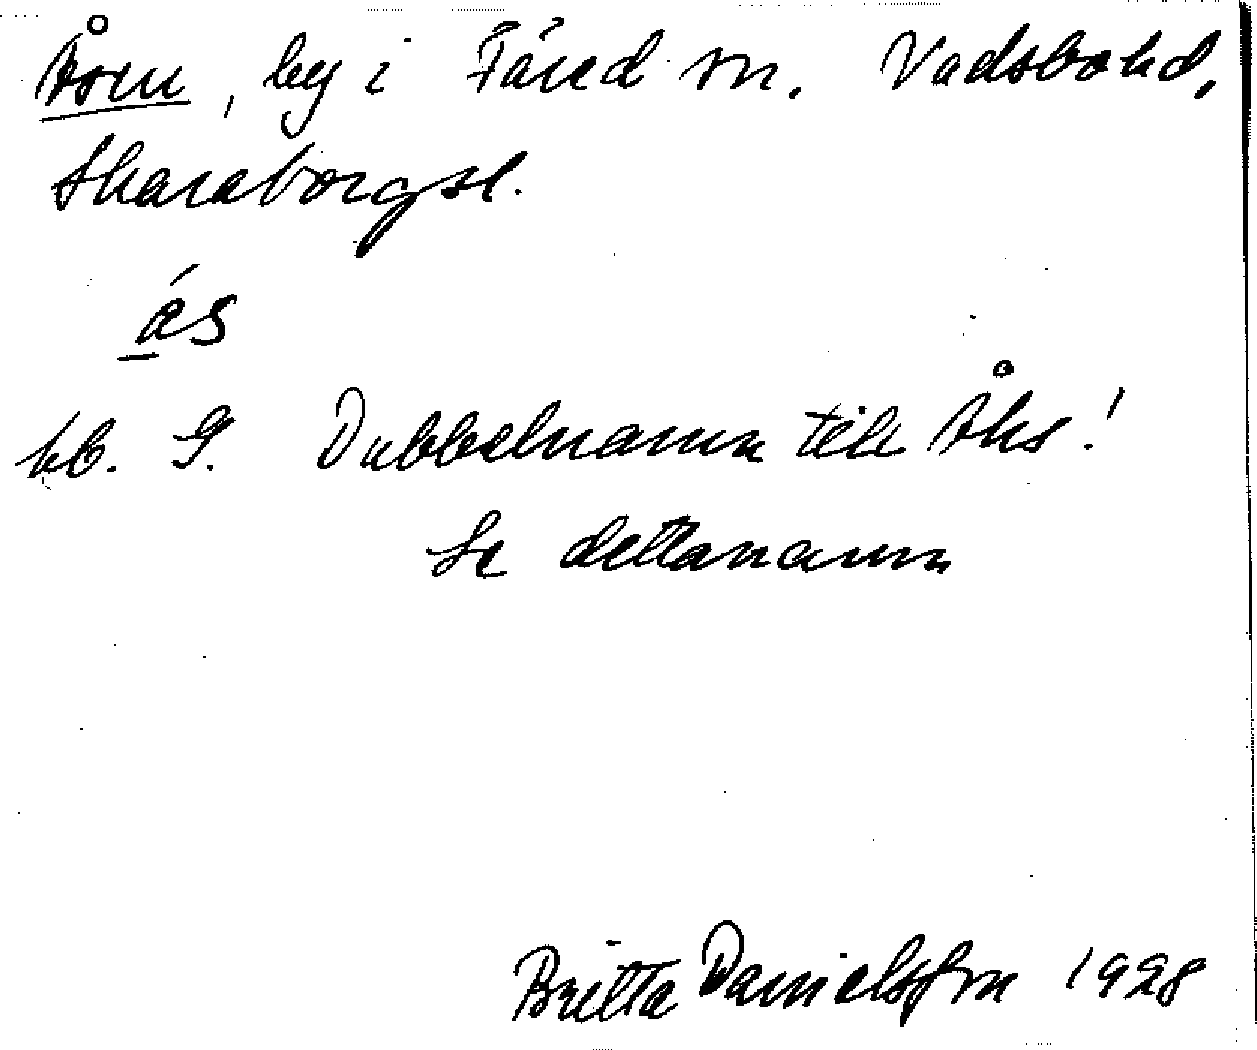 Åsen, by i Färed sn. Vadsbo hd,
Skaraborgsl.
ás
bb. G. Dubbelnamn till Åhs!
Se dettanamn
Britta Danielsson 1928